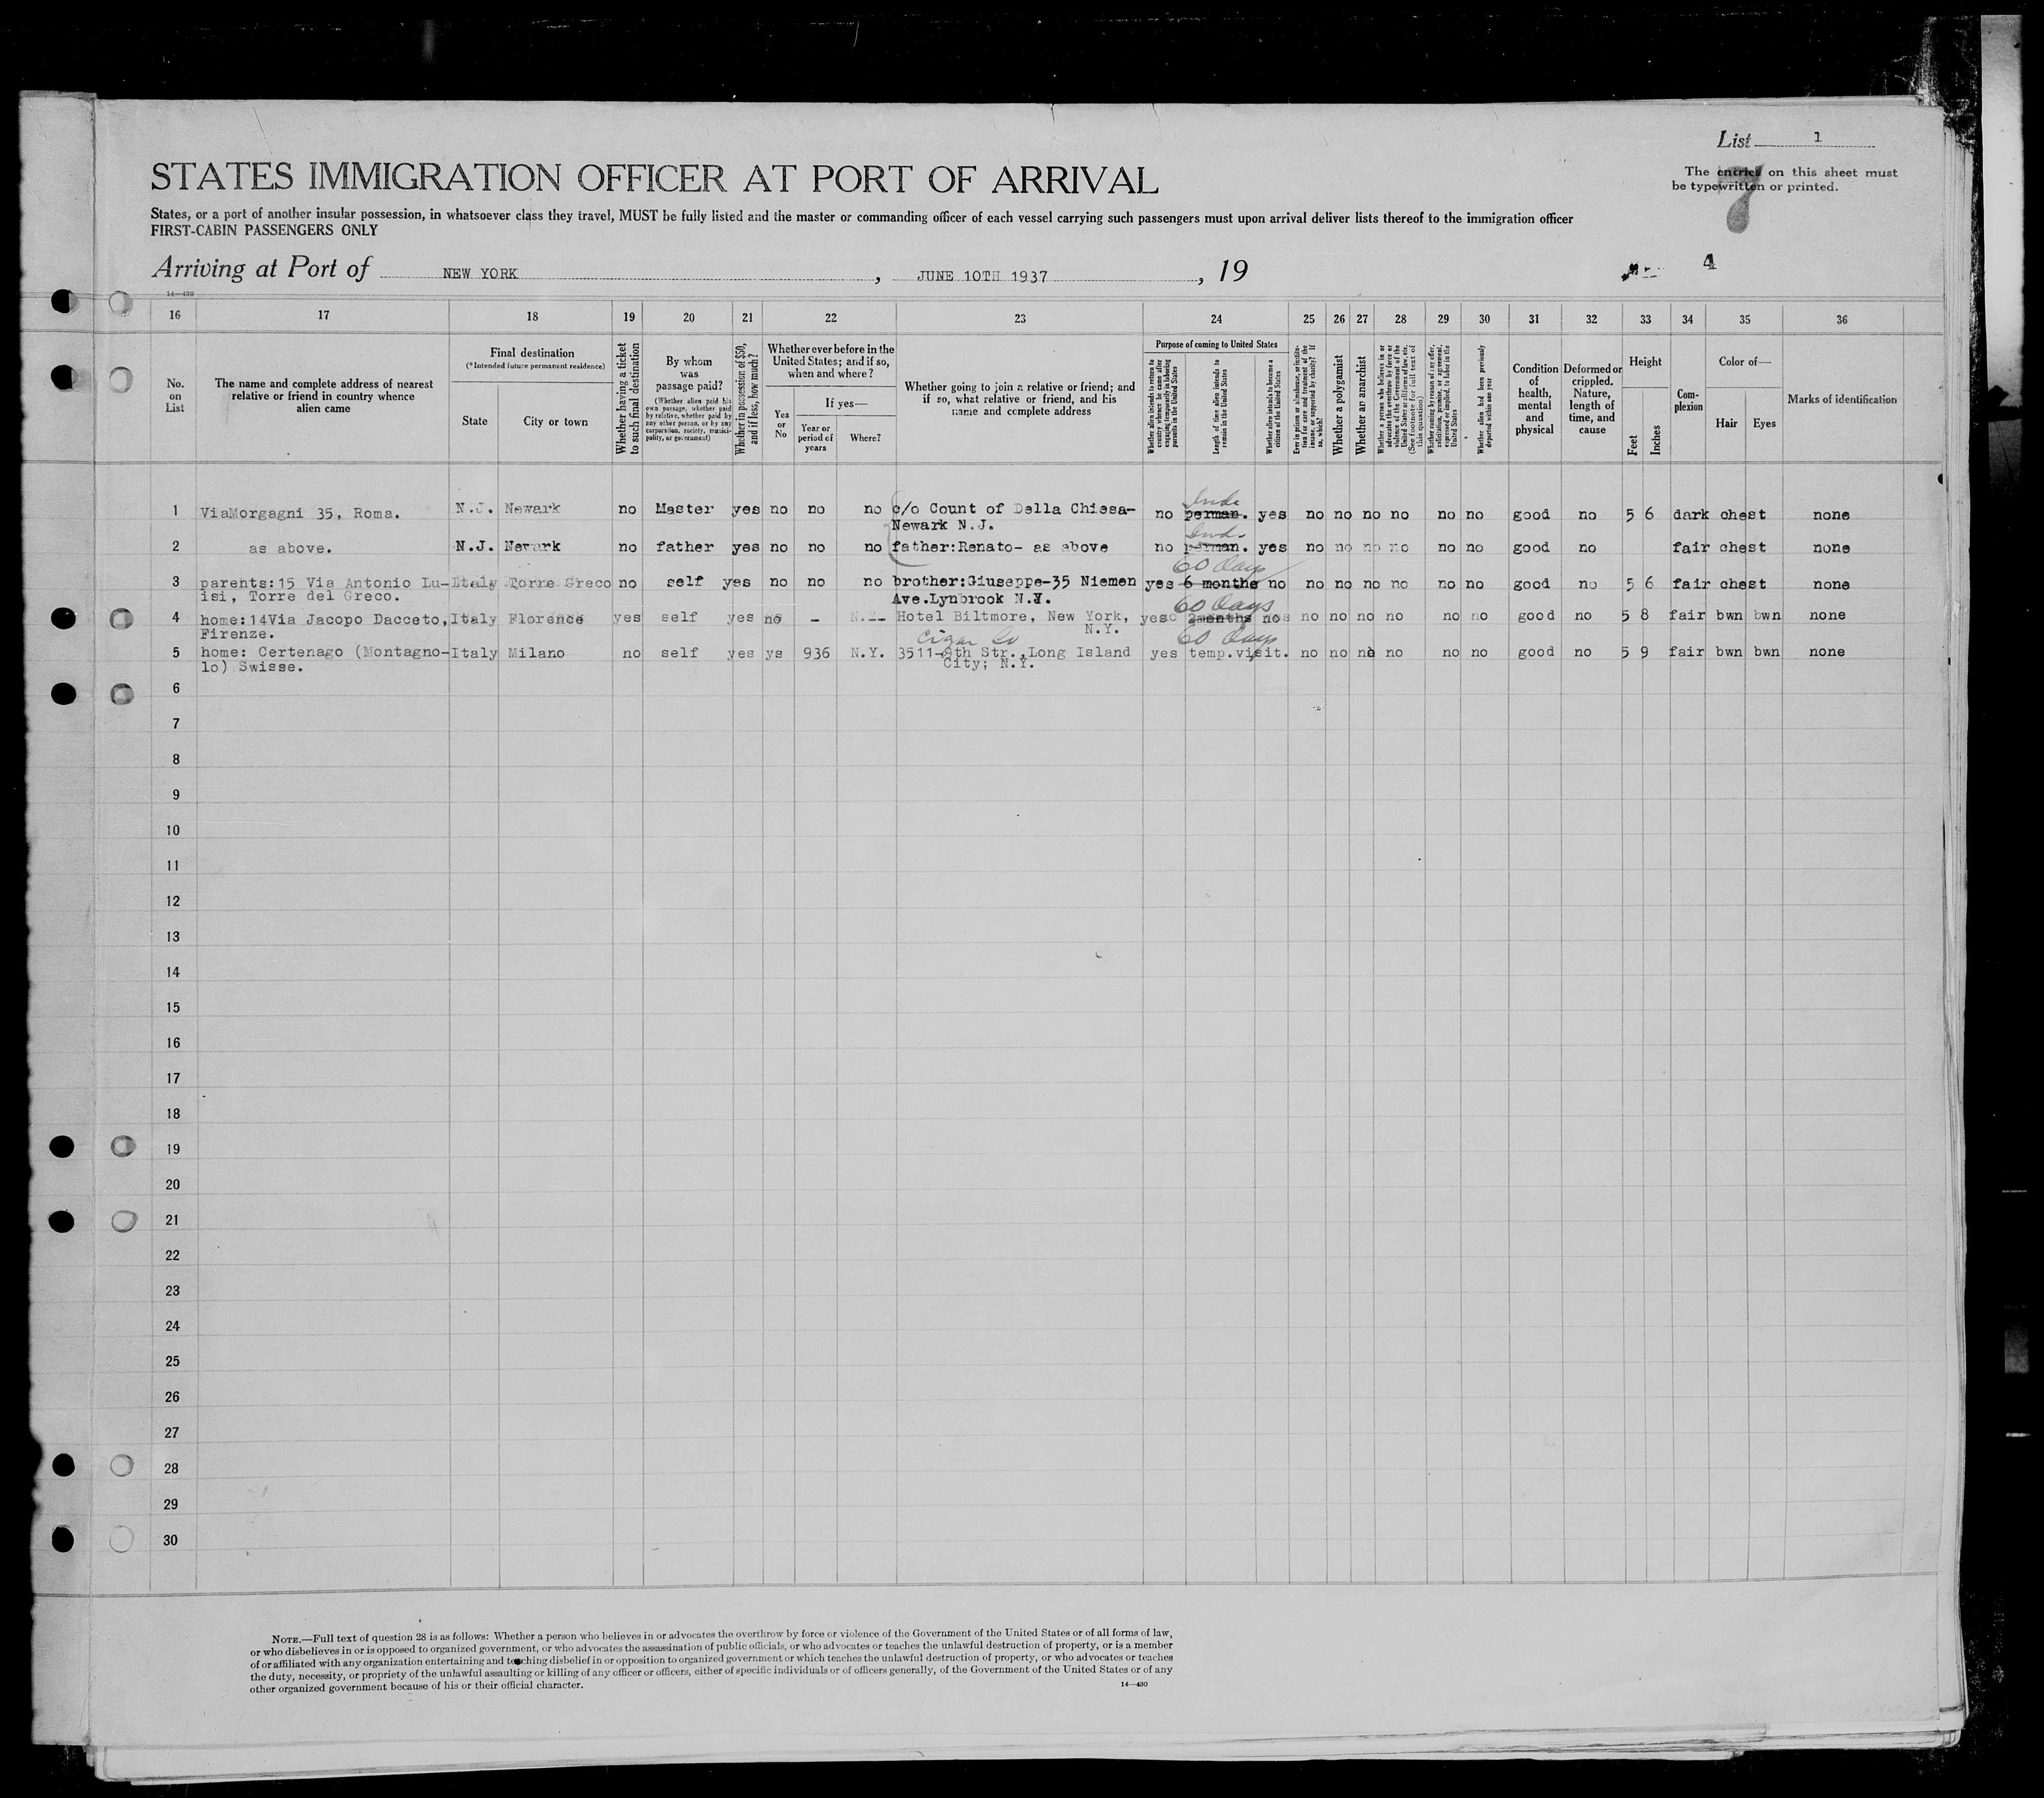 List 1
STATES IMMIGRATION OFFICER AT PORT OF ARRIVAL
The entries on this sheet must
be typewritten or printed.
States, or a port of another insular possession, in whatsoever class they travel, MUST be fully listed and the master or commanding officer of each vessel carrying such passengers must upon arrival deliver lists thereof to the immigration officer
FIRST-CABIN PASSENGERS ONLY
Arriving at Port of NEW YORK, JUNE 10TH 1937, 19
4
14—430
16 17 18 19 20 21 22 23 24 25 26 27 28 29 30 31 32 33 34 35 36
No. on List
The name and complete address of nearest relative or friend in country whence alien came
Final destination
(*Intended future permanent residence)
State
City or town
Whether having a ticket to such final destination
By whom was passage paid?
(Whether alien paid his own passage, whether paid by relative, whether paid by any other person, or by any corporation, society, municipality, or government)
Whether in possession of $50, and if less, how much?
Whether ever before in the United States; and if so, when and where?
Yes or No
If yes—
Year or period of years
Where?
Whether going to join a relative or friend; and if so, what relative or friend, and his name and complete address
Purpose of coming to United States
Whether alien intends to return to country whence he came after engaging temporarily in laboring pursuits in the United States
Length of time alien intends to remain in the United States
Whether alien intends to become a citizen of the United States
Ever in prison or almshouse, or institution for care and treatment of the insane, or supported by charity? If so, which?
Whether a polygamist
Whether an anarchist
Whether a person who believes in or advocates the overthrow by force or violence of the Government of the United States or all forms of law, etc. (See footnote for full text of this question)
Whether coming by reason of any offer, solicitation, promise, or agreement, expressed or implied, to labor in the United States
Whether alien had been previously deported within one year
Condition of health, mental and physical
Deformed or crippled. Nature, length of time, and cause
Height
Feet
Inches
Complexion
Color of—
Hair
Eyes
Marks of identification
Inde
1 ViaMorgagni 35, Roma. N.J. Newark no Master yes no no no c/o Count of Della Chiesa- no perman. yes no no no no no no good no 5 6 dark chest none
Newark N.J.
Ind.
2 as above. N.J. Newark no father yes no no no father:Renato- as above no perman. yes no no no no no no good no fair chest none
60 days
3 parents:15 Via Antonio Lu- Italy Torre Greco no self yes no no no brother:Giuseppe-35 Niemen yes 6 months no no no no no no no good no 5 6 fair chest none
isi, Torre del Greco. Ave.Lynbrook N.Y.
60 days
4 home:14Via Jacopo Dacceto, Italy Florence yes self yes no - N.Y. Hotel Biltmore, New York, yes 2months no no no no no no no good no 5 8 fair bwn bwn none
Firenze. N.Y.
Cigar Co 60 days
5 home: Certenago (Montagno- Italy Milano no self yes ys 936 N.Y. 3511-9th Str.,Long Island yes temp.visit. no no no no no no good no 5 9 fair bwn bwn none
lo) Swisse. City; N.Y.
6
7
8
9
10
11
12
13
14
15
16
17
18
19
20
21
22
23
24
25
26
27
28
29
30
NOTE.—Full text of question 28 is as follows: Whether a person who believes in or advocates the overthrow by force or violence of the Government of the United States or of all forms of law,
or who disbelieves in or is opposed to organized government, or who advocates the assassination of public officials, or who advocates or teaches the unlawful destruction of property, or is a member
of or affiliated with any organization entertaining and teaching disbelief in or opposition to organized government or which teaches the unlawful destruction of property, or who advocates or teaches
the duty, necessity, or propriety of the unlawful assaulting or killing of any officer or officers, either of specific individuals or of officers generally, of the Government of the United States or of any
other organized government because of his or their official character.
14—430